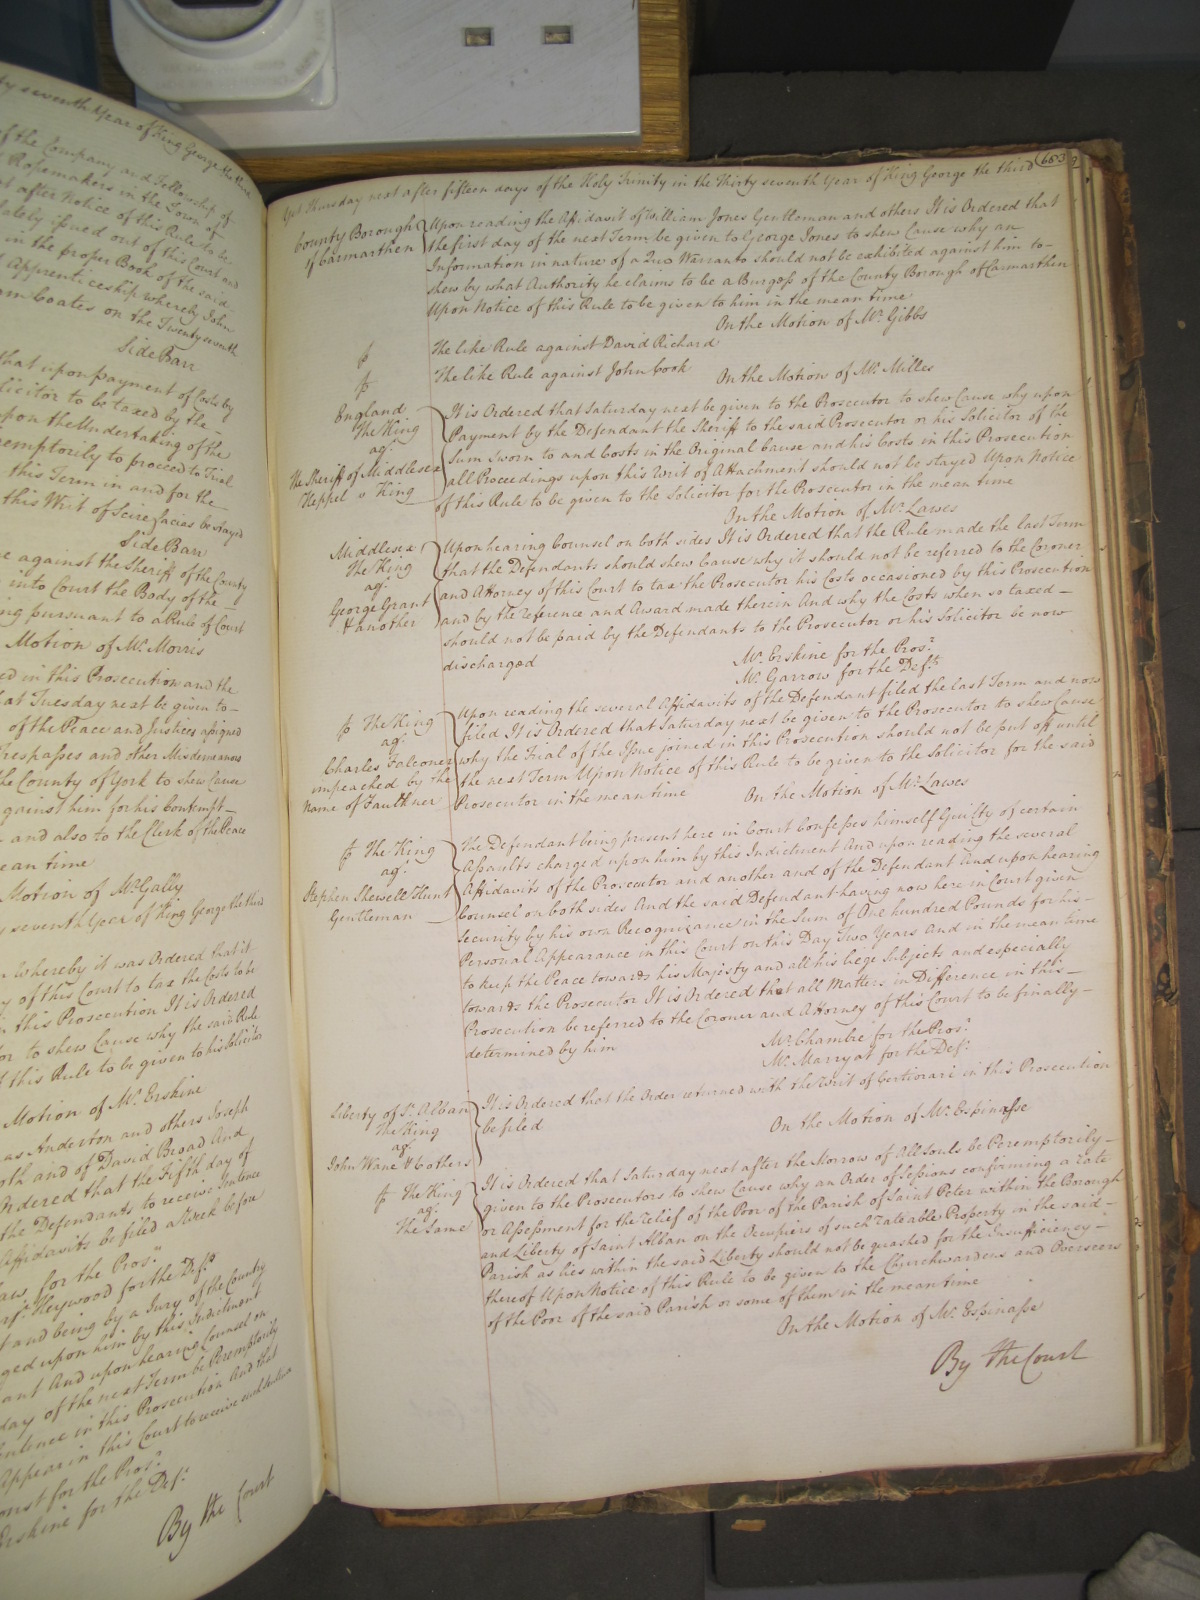 ty seventh Year of King George the third
of the Company and Fellowship of
Ropemakers in the Town of
after Notice of this Rule to be
lately issued out of this Court and
in the proper Book of the said
Apprenticeship whereby John
Coates on the Twenty seventh
Side Barr
that upon payment of Costs by
licitor to be taxed by the
upon the Undertaking of the
remptorily to proceed to Trial
this Term in and for the
this Writ of Scire facias be stayed
Side Barr
against the Sheriff of the County
into Court the Body of the
pursuant to a Rule of Court
Motion of Mr. Morris
in this Prosecution and the
at Tuesday next be given to
of the Peace and Justices assigned
Trespasses and other Misdemeanors
the County of York to shew Cause
against him for his Contempt
and also to the Clerk of the Peace
mean time
Motion of Mr. Gally
y seventh Year of King George the third
Whereby it was Ordered that it
of this Court to tax the Costs to be
this Prosecution It is Ordered
to shew Cause why the said Rule
this Rule to be given to his Solicitor
Motion of Mr. Erskine
Anderton and others Joseph
and of David Broad And
Ordered that the Fifth day of
the Defendants to receive Sentence
Affidavits be filed a Week before
for the Pros.r
Heywood for the Def.ts
and being by a Jury of the Country
ged upon him by this Indictment
ant And upon hearing Counsel on
day of the next Term be Peremptorily
entence in this Prosecution And that
Appear in this Court to receive such Sentence
for the Pros.r
Erskine for the Def.t
By the Court
653
Yet Thursday next after fifteen days of the Holy Trinity in the Thirty seventh Year of King George the third
County Borough
of Carmarthen
Upon reading the Affidavit of William Jones Gentleman and others It is Ordered that
the first day of the next Term be given to George Jones to shew Cause why an
Information in nature of a Quo Warranto should not be exhibited against him to
shew by what Authority he claims to be a Burgess of the County Borough of Carmarthen
Upon Notice of this Rule to be given to him in the mean time
On the Motion of Mr. Gibbs
The like Rule against David Richard
The like Rule against John Cook
On the Motion of Mr. Milles
England
The King
ag.t
The Sheriff of Middlesex
Keppel v King
It is Ordered that Saturday next be given to the Prosecutor to shew Cause why upon
Payment by the Defendant the Sheriff to the said Prosecutor or his Solicitor of the
Sum Sworn to and Costs in the Original Cause and his Costs in this Prosecution
all Proceedings upon this Writ of Attachment should not be stayed Upon Notice
of this Rule to be given to the Solicitor for the Prosecutor in the mean time
On the Motion of Mr. Lawes
Middlesex
The King
ag.t
George Grant
& another
Upon hearing Counsel on both sides It is Ordered that the Rule made the last Term
that the Defendants should shew Cause why it should not be referred to the Coroner
and Attorney of this Court to tax the Prosecutor his Costs occasioned by this Prosecution
and by the Reference and Award made therein And why the Costs when so taxed
should not be paid by the Defendants to the Prosecutor or his Solicitor be now
discharged
Mr. Erskine for the Pros.r
Mr. Garrow for the Def.ts
The King
ag.t
Charles Falconer
impeached by the
Name of Faulkner
Upon reading the several Affidavits of the Defendant filed the last Term and now
filed It is Ordered that Saturday next be given to the Prosecutor to shew Cause
why the Trial of the Issue joined in this Prosecution should not be put off until
the next Term Upon Notice of this Rule to be given to the Solicitor for the said
Prosecutor in the mean time
On the Motion of Mr. Lawes
The King
ag.t
Stephen Shewell Hunt
Gentleman
The Defendant being present here in Court Confesses himself Guilty of certain
Assaults charged upon him by this Indictment And upon reading the several
Affidavits of the Prosecutor and another and of the Defendant And upon hearing
Counsel on both sides And the said Defendant having now here in Court given
Security by his own Recognizance in the Sum of One hundred Pounds for his
Personal Appearance in this Court on this Day Two Years And in the mean time
to keep the Peace towards his Majesty and all his Liege Subjects and especially
towards the Prosecutor It is Ordered that all Matters in Difference in this
Prosecution be referred to the Coroner and Attorney of this Court to be finally
determined by him
Mr. Chambre for the Pros.r
Mr. Marryat for the Def.t
Liberty of St. Alban
The King
ag.t
John Wane & 6 others
It is Ordered that the Order returned with the Writ of Certiorari in this Prosecution
be filed
On the Motion of Mr. Espinasse
The King
ag.t
The Same
It is Ordered that Saturday next after the Morrow of All Souls be Peremptorily
given to the Prosecutors to shew Cause why an Order of Sessions confirming a Rate
or Assessment for the relief of the Poor of the Parish of Saint Peter within the Borough
and Liberty of Saint Alban on the Occupiers of such rateable Property in the said
Parish as lies within the said Liberty should not be quashed for the Insufficiency
thereof Upon Notice of this Rule to be given to the Churchwardens and Overseers
of the Poor of the said Parish or some of them in the mean time
On the Motion of Mr. Espinasse
By the Court